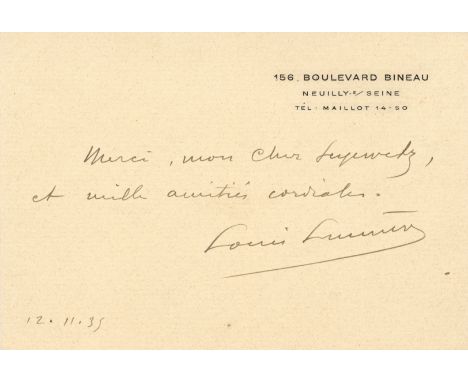 156, BOULEVARD BINEAU
NEUILLY-S/ SEINE
TÉL. MAILLOT 14-50
Merci, mon cher Seyewetz,
et mille amitiés cordiales.
Louis Lumière
12.11.35